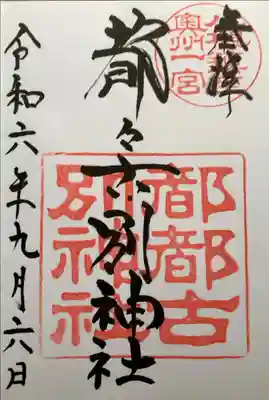 奉拝
奥州一宮
都々古別神社
都都古
別神社
令和六年九月六日